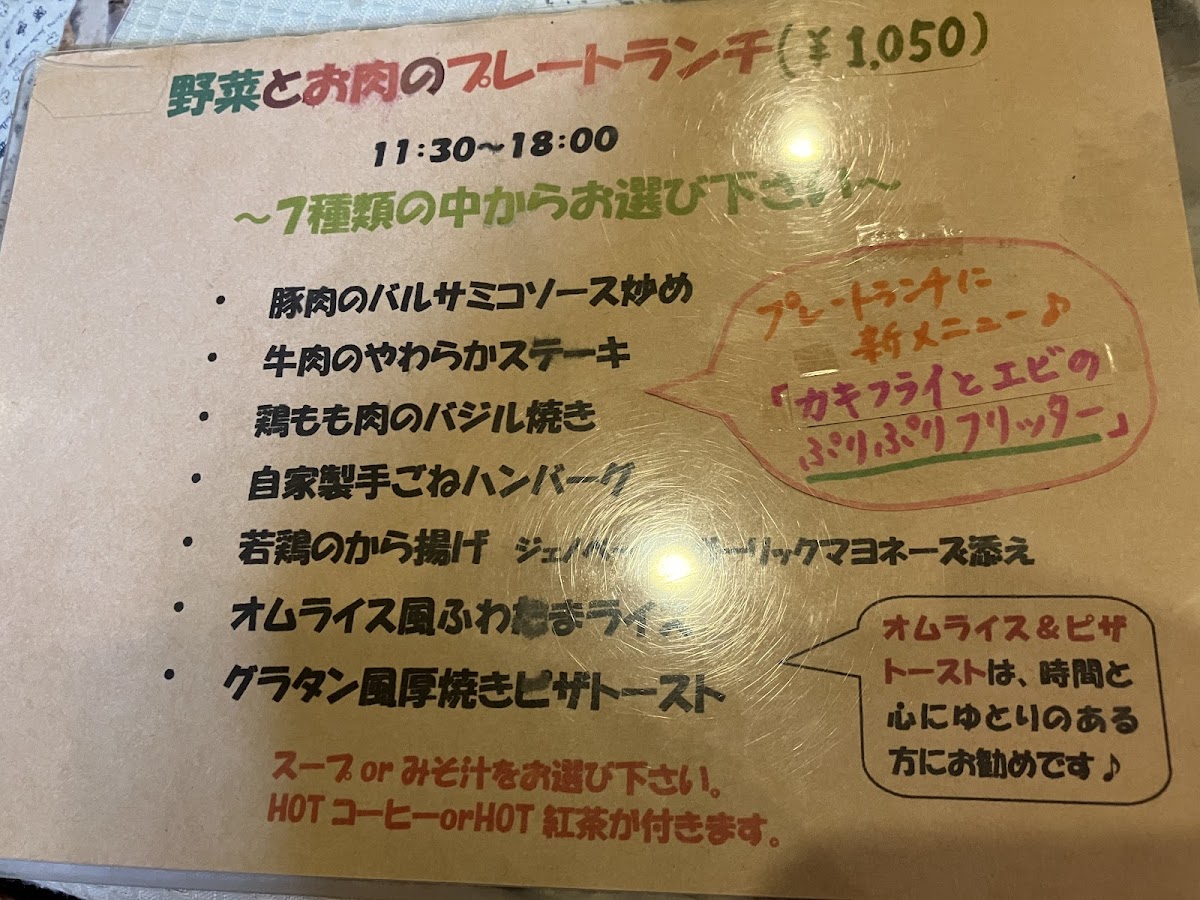 野菜とお肉のプレートランチ(¥1,050)
11:30～18:00
～7種類の中からお選び下さい～
・ 豚肉のバルサミコソース炒め
・ 牛肉のやわらかステーキ
・ 鶏もも肉のバジル焼き
・ 自家製手ごねハンバーグ
・ 若鶏のから揚げ ーリックマヨネーズ添え
・ オムライス風ふわたまライス
・ グラタン風厚焼きピザトースト
プレートランチに
新メニュー♪
「カキフライとエビの
ぷりぷりフリッター」
オムライス＆ピザ
トーストは、時間と
心にゆとりのある
方にお勧めです♪
スープorみそ汁をお選び下さい。
HOTコーヒーorHOT紅茶が付きます。